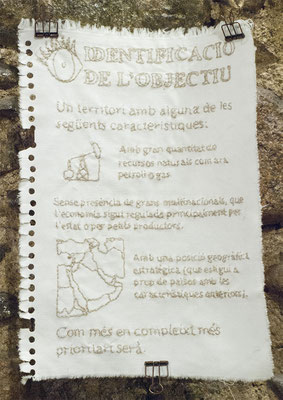 IDENTIFICACIÓ
DE L'OBJECTIU
Un territori amb alguna de les
següents característiques:
Amb gran quantitat de
recursos naturals com ara
petroli o gas.
Sense presència de grans multinacionals, que
l'economia sigui regulada principalment per
l'estat o per petits productors.
Amb una posició geogràfica
estratègica (que estigui a
prop de països amb les
característiques anteriors).
Com més en compleixi més
prioritari serà.